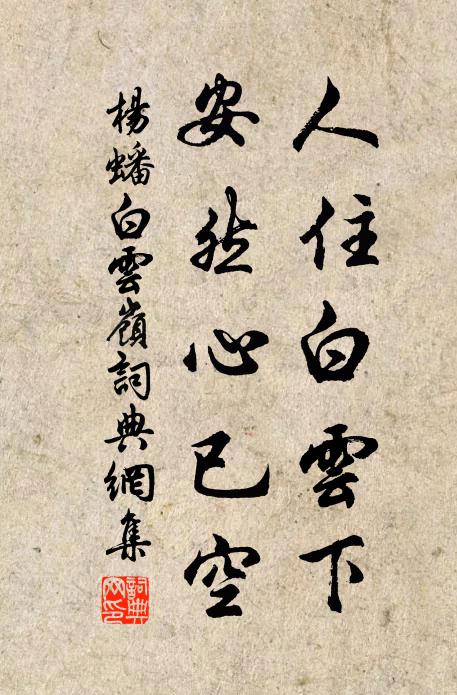 人住白雲下
安然心已空
楊蟠白雲嶺詞典網集
詞典
文印